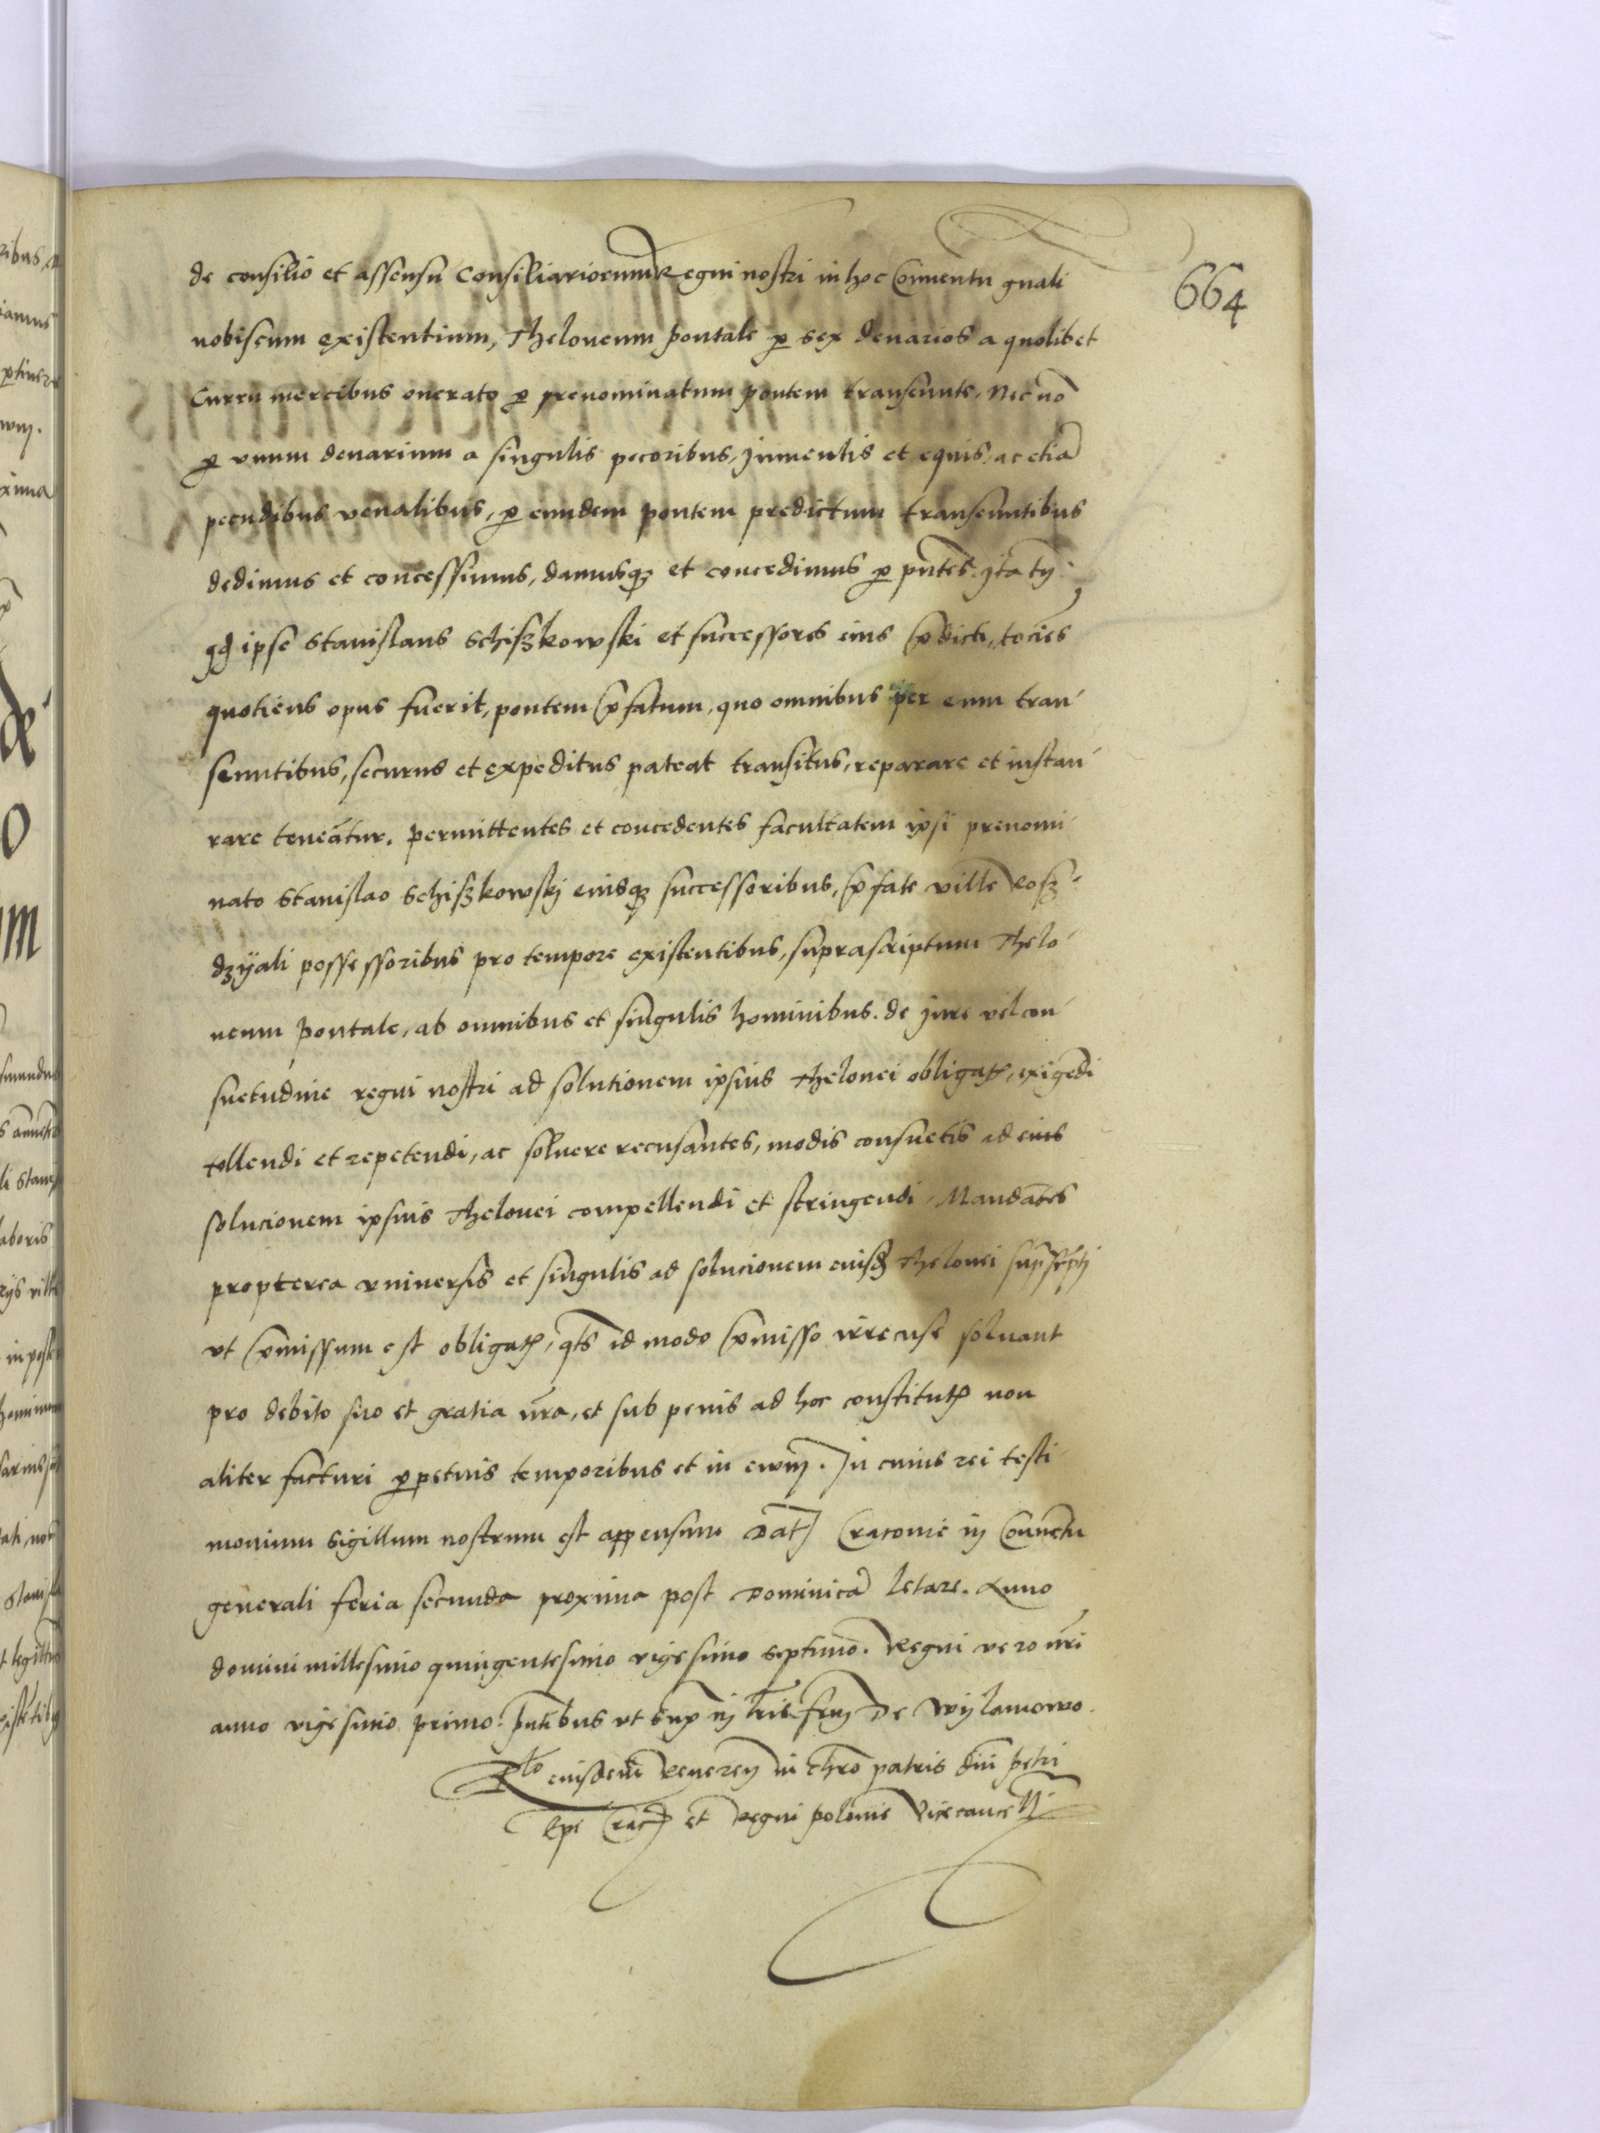 664
de consilio et assensu Consiliariorum Regni nostri in hoc Conventu gnali
nobiscum existentium, Theloneum pontale p sex denarios a quolibet
Curru mercibus onerato p prenominatum pontem transeunte, Nec nõ
p vnum denarium a singulis pecoribus, Jumentis et equis, ac etiã
pecudibus venalibus, p eundem pontem predictum transeuntibus
dedimus et concessimus, damusq et concedimus p pntes. Ita tñ
qd ipse Stanislaus Schiszkowski et successores eius pdicti, tocies
quotiens opus fuerit, pontem pfatum, quo omnibus per eum tran
seuntibus, securus et expeditus pateat transitus, reparare et instau
rare teneãtur. Permittentes et concedentes facultatem ipsi prenomi
nato Stanislao Schiszkowskj eiusq successoribus, pfate ville Rosz
dzyali possessoribus pro tempore existentibus, suprascriptum Thelo
neum pontale, ab omnibus et singulis hominibus. de Jure vel con
suetudine regni nostri ad solutionem ipsius Thelonei obligat, exigedi
tollendi et repetendi, ac soluere recusantes, modis consuetis ad eius
solucionem ipsius Thelonei compellendi et stringendi, Mandãtes
propterea vniversis et singulis ad solucionem eiusd Thelonei
vt pmissum est obligat, qts id modo pmisso irrecuse soluant
pro debito suo et gratia nra, et sub penis ad hoc constitut non
aliter facturi ppetuis temporibus et in ewm. In cuius rei testi
monium Sigillum nostrum est appensum Dat Cracovie in Conuetu
generali feria secunda proxima post Dominicã Letare. Anno
domini millesimo quingentesimo vigesimo septimo. Regni vero nri
anno vigesimo primo. pntibus vt sup in lris de Wylamowo.
Rlo eiusdem Reueren in chro patris dni petri
Epi Crac et Regni polonie Vicecancell